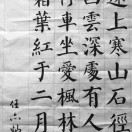 遠上寒山石徑
白雲深處有人
停車坐愛楓林
霜葉紅于二月